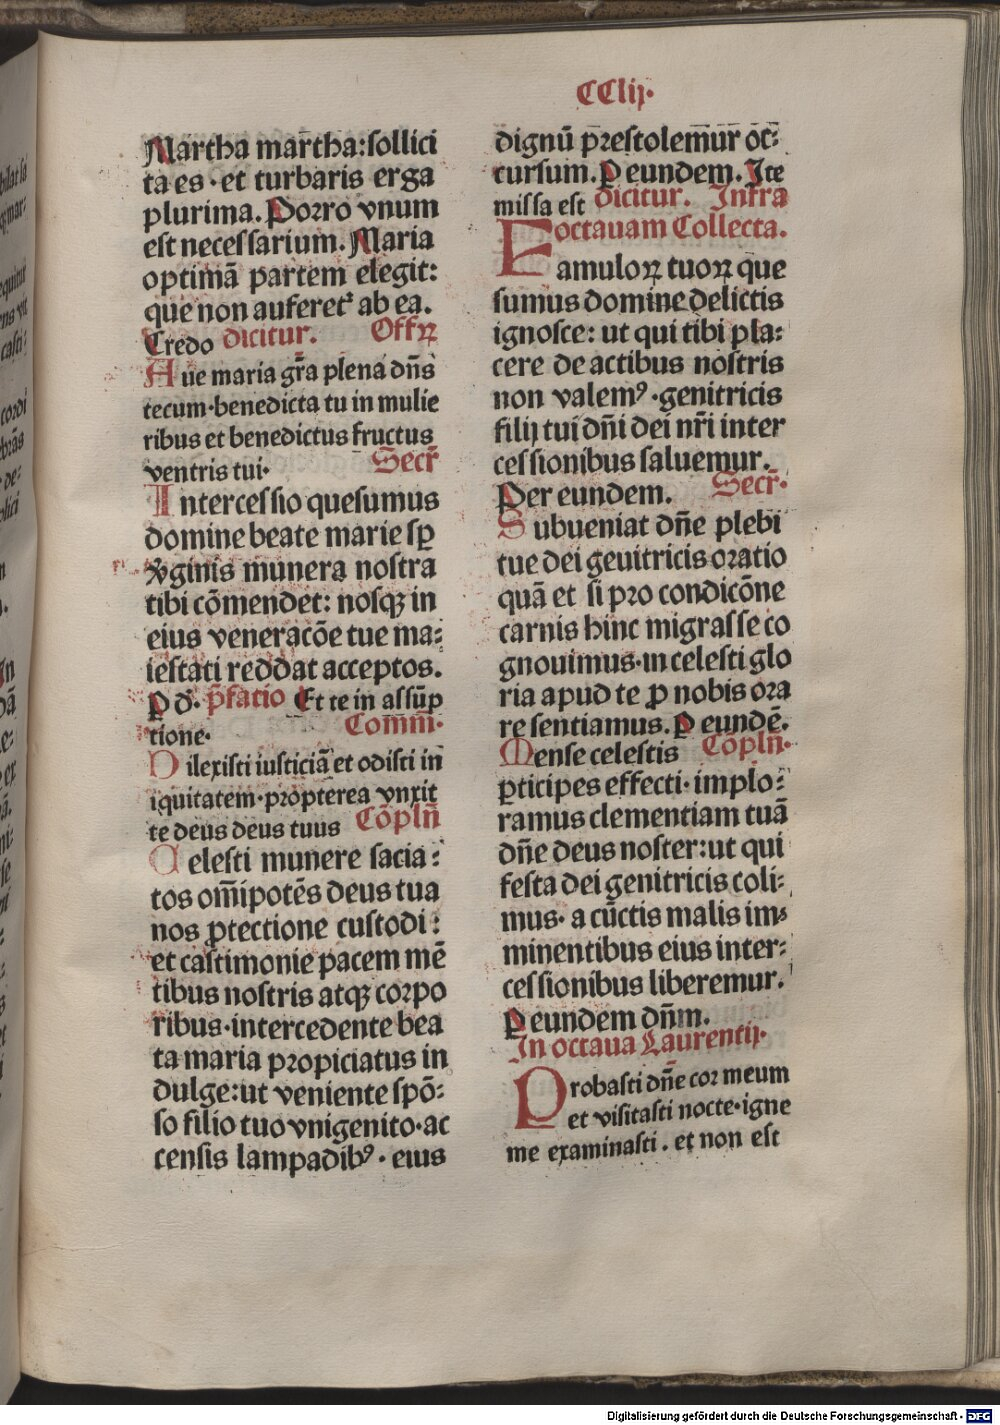 CClij.
Martha mar̄tha: sollici
ta es · et turbaris erga
plurima. Porro vnum
est necessarium. Maria
optimā partem elegit:
que non auferet᷑ ab ea.
Credo dicitur. Offꝝ
Aue maria gr̄a plena dn̄s
tecum · benedicta tu in mulie
ribus et benedictus fructus
ventris tui · Secr̄
Intercessio quesumus
domine beate marie sꝑ
v̓ginis munera nostra
tibi cōmendet: nosqꝫ in
eius veneracōe tue ma⸗
iestati reddat acceptos.
P d. p̄fatio Et te in assūp
tione · Comm̄ ·
Dilexisti iusticiā et odisti in
iquitatem · propterea vnxit
te deus deus tuus Cōpln̄
Celesti munere sacia⸗
tos om̄ipotēs deus tua
nos ꝓtectione custodi:
et castimonie pacem mē
tibus nostris atqꝫ corpo
ribus · intercedente bea
ta maria propiciatus in
dulge: ut veniente spō⸗
so filio tuo vnigenito · ac
censis lampadibꝰ · eius
dignū prestolem̄ur oc⸗
cursum. P eundem. Ite
missa est dicitur. Infra
octauam Collecta.
Famuloꝝ tuoꝝ que
sumus domine delictis
ignosce: ut qui tibi pla⸗
cere de actibus nostris
non valemꝰ · genitricis
filij tui dn̄i dei nr̄i inter
cessionibus saluemur.
Per eundem. Secr̄ ·
Subueniat dn̄e plebi
tue dei geuitricis oratio
quā et si pro condicōne
carnis hinc migrasse co
gnouimus · in celesti glo
ria apud te ꝓ nobis ora
re sentiamus. P eundē.
Mense celestis Cōpln̄ ·
ꝑticipes effecti · implo⸗
ramus clementiam tuā
dn̄e deus noster: ut qui
festa dei genitricis coli⸗
mus · a cūctis malis im⸗
minentibus eius inter⸗
cessionibus liberemur.
P eundem dn̄m.
In octaua Laurentij.
Probasti dn̄e cor meum
et visitasti nocte · igne
me examinasti. et non est
Digitalisierung gefördert durch die Deutsche Forschungsgemeinschaft - DFG